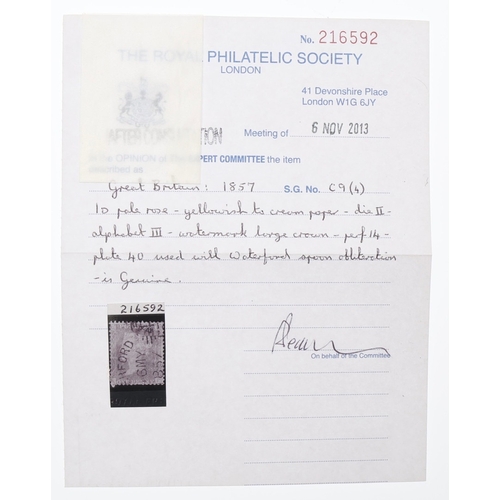 No. 216592
THE ROYAL PHILATELIC SOCIETY
LONDON
41 Devonshire Place
London W1G 6JY
Meeting of 6 NOV 2013
OPINION EXPERT COMMITTEE the item
Great Britain: 1857 S.G. No. C9(4)
1D pale rose - yellowish to cream paper - die II -
alphabet III - watermark large crown - perf 14 -
plate 40 used with Waterford spoon obliteration
- is Genuine.
216592
On behalf of the Committee